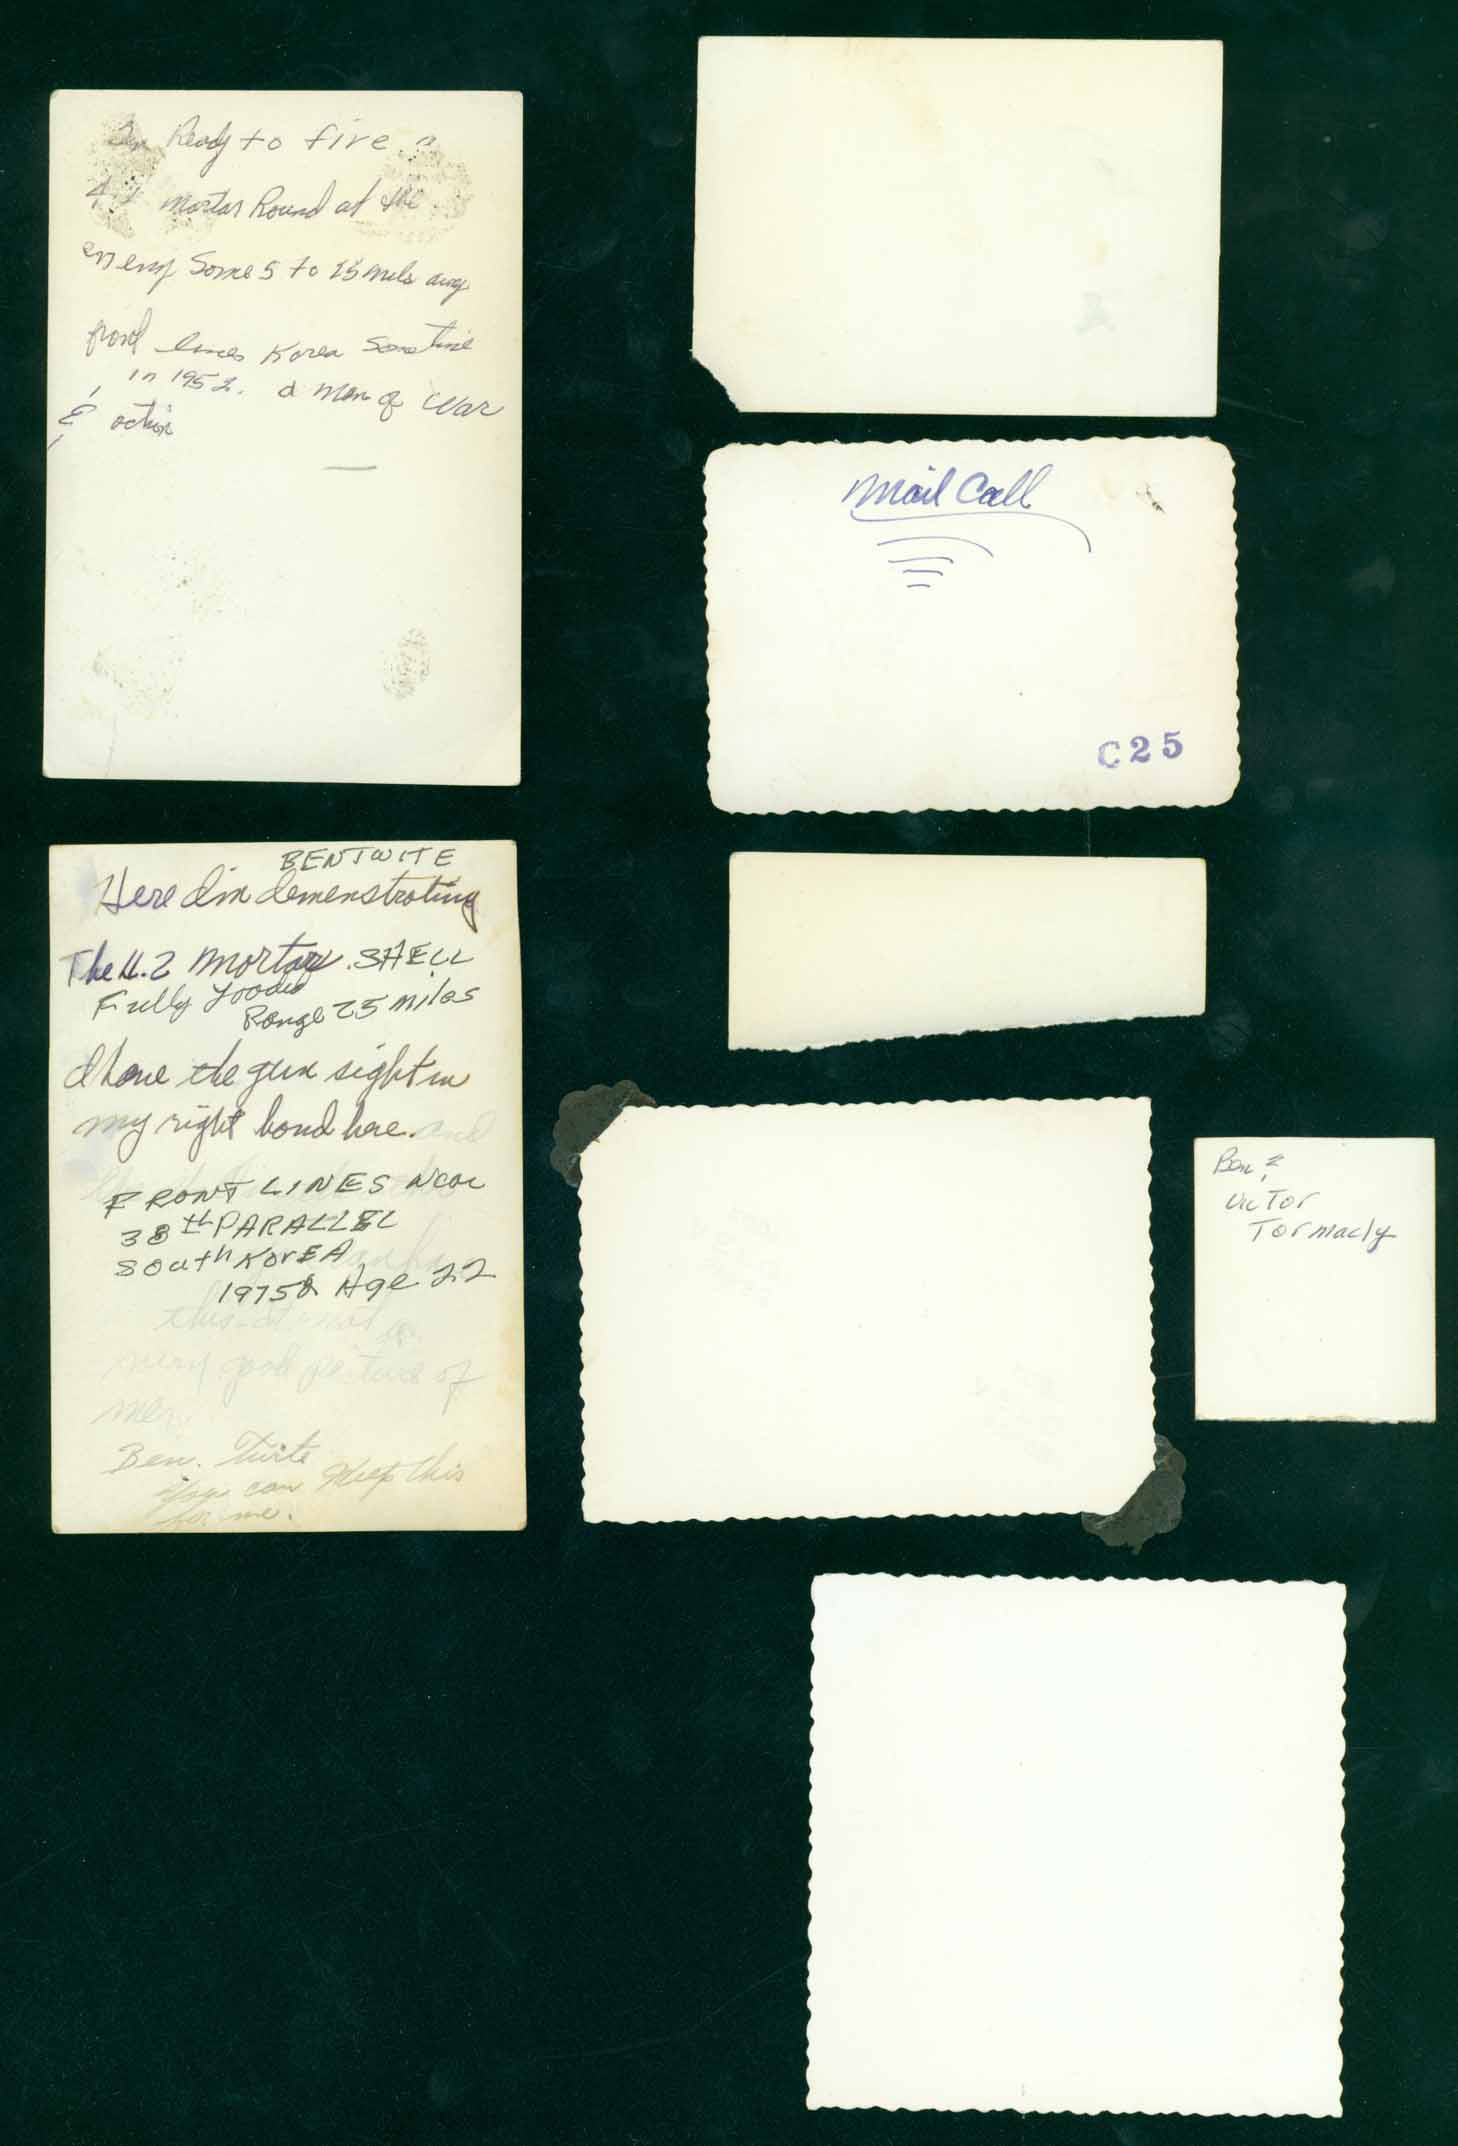 Ready to fire a
Mortar Round at the
enemy Some 5 to 15 mils away
front lines Korea Sometime
in 1952. a Man of War
& action
Mail Call
C25
BEN TWITE
Here I'm demenstrating
The 4.2 Mortar SHELL
Fully Loaded
Range 25 miles
I have the gun sight in
my right hand here. and
FRONT LINES Near
38th PARALLEL
South KorEA
Age 22
this. It not a
very good picture of
me.
Ben. Twite
You can Keep this
for me.
Ben &
Victor
Tormacly